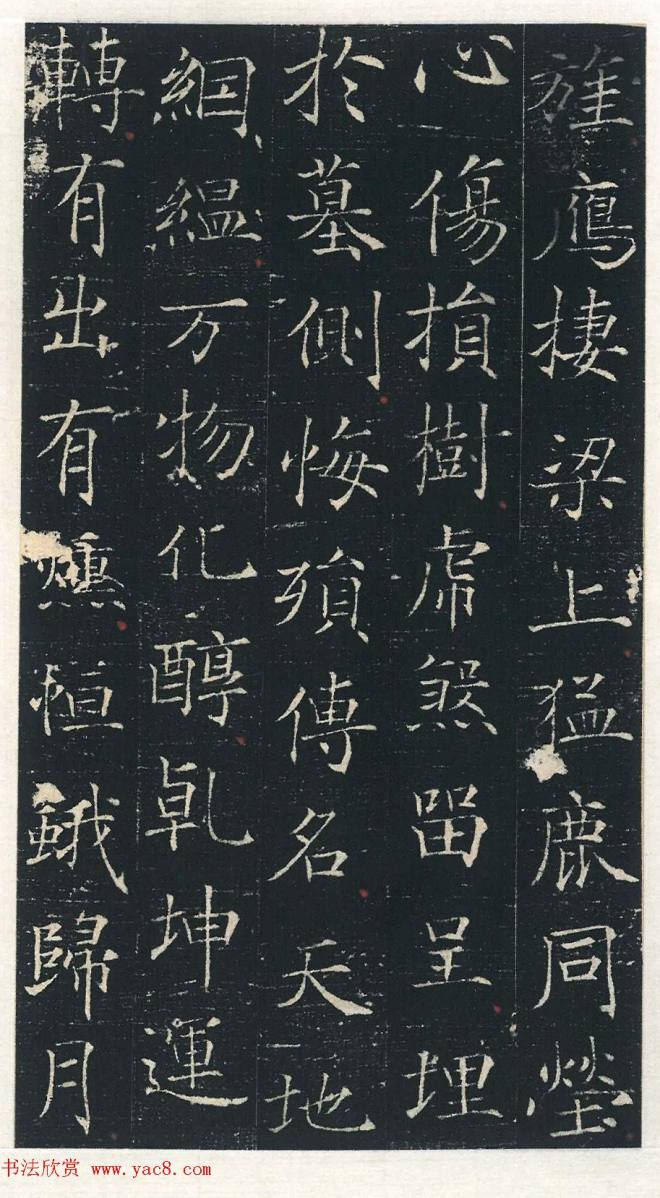 旌鴈棲梁上猛鹿同瑩
心傷損樹虎煞留呈埋
於墓側悔殞傳名天地
絪縕万物化醇乹坤運
轉有出有𤋱恒蛾歸月
书法欣赏 www.yac8.com